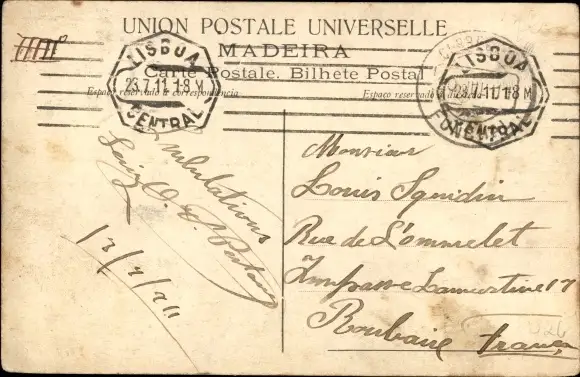 UNION POSTALE UNIVERSELLE
MADEIRA
Carte Postale. Bilhete Postal
Espaço reservado a correspondencia
Espaço reservado
LISBOA
23.7.11 1.8 M
CENTRAL
LISBOA
23.7.11 1.8 M
CENTRAL
FUNCHAL
Luiz O.
13/7/911
Monsieur
Louis Squidin
Rue de L'ommelet
Impasse Lamartine 17
Roubaix France